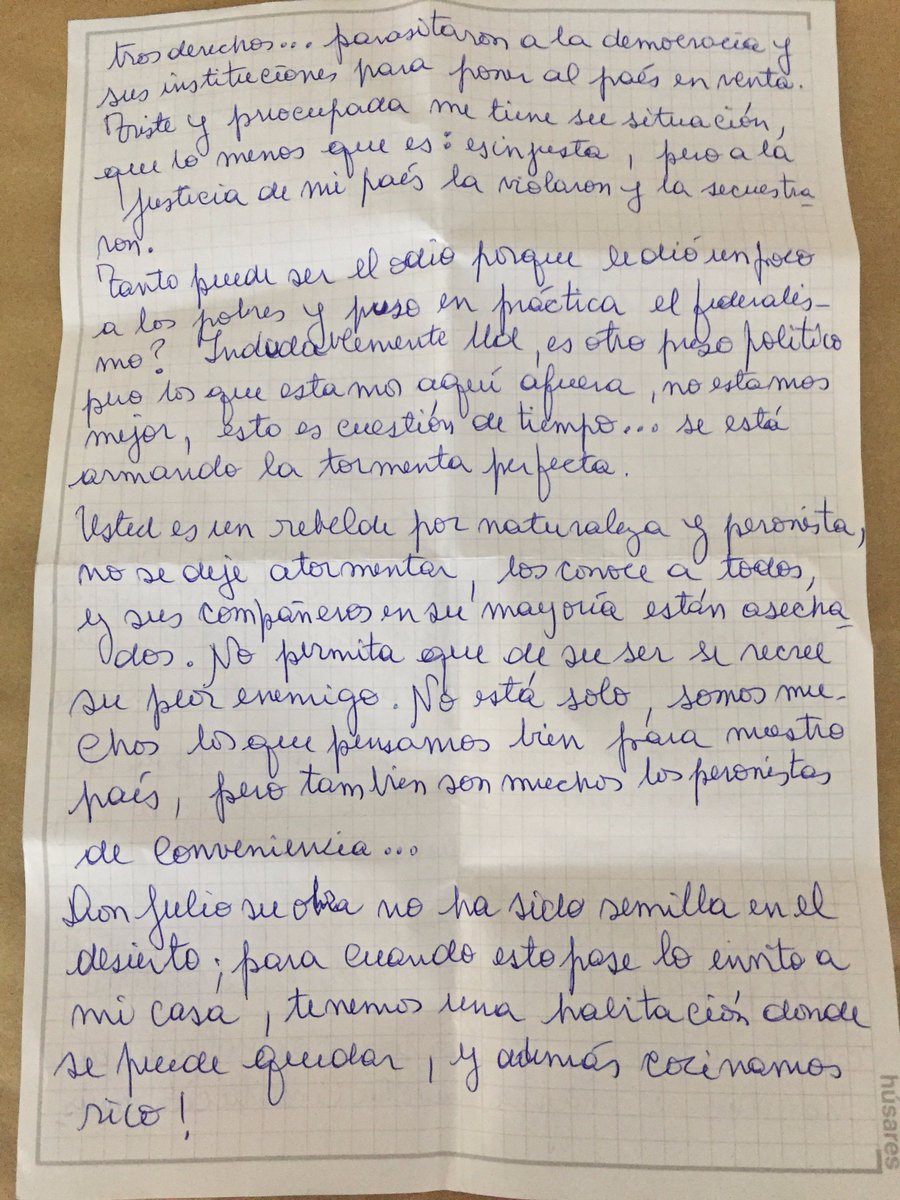 tros derechos... parasitaron a la democracia y
sus instituciones para poner al país en venta.
Triste y preocupada me tiene su situación,
que lo menos que es: es injusta, pero a la
justicia de mi país la violaron y la secuestra-
ron.
Tanto puede ser el odio porque le dió un poco
a los pobres y puso en práctica el federalis-
mo? Indudablemente Ud, es otro preso político
pero los que estamos aquí afuera, no estamos
mejor, esto es cuestión de tiempo... se está
armando la tormenta perfecta.
Usted es un rebelde por naturaleza y peronista,
no se deje atormentar, los conoce a todos,
y sus compañeros en su mayoría están asecha-
dos. No permita que de su ser se recree
su peor enemigo. No está solo, somos mu-
chos los que pensamos bien para nuestro
país, pero tambien son muchos los peronistas
de conveniencia...
Don Julio su obra no ha sido semilla en el
desierto; para cuando esto pase lo invito a
mi casa, tenemos una habitación donde
se puede quedar, y además cocinamos
rico!
húsares